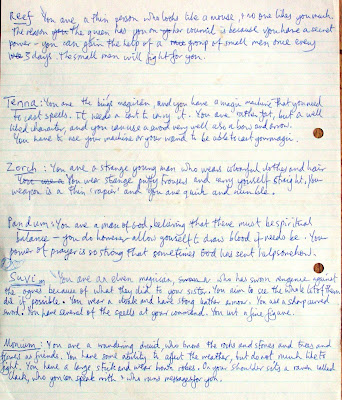 Reef You are a thin person who looks like a mouse, & no one likes you much.
The reason the queen has you on her council is because you have a secret
power - you can gain the help of a group of small men once every
5 days. The small men will fight for you.
Tenna: You are the kings magician, and you have a magic machine that you need
to cast spells. It needs a cart to carry it. You are rather fat, but a well
liked character, and you can use a sword very well, also a bow and arrow.
You have to use your machine or your wand to be able to cast your magic.
Zorch: You are a strange young man who wears colourful clothes and hair
You wear strange puffy trousers and very yourself. Your
weapon is a thin 'rapier' and you are quick and nimble.
Pandum: You are a man of God, believing that there must be spiritual
balance - you do however allow yourself to draw blood if need be. Your
power of prayer is so strong that sometimes God has sent help somehow.
Suvi - You are an elven magician, who has sworn vengeance against
the ogres because of what they did to your sister. You aim to see the whole lot of them
die if possible. You wear a cloak and have strong leather armour. You use a sharp curved
sword. You have several of the spells at your command. You cut a fine figure.
Menium: You are a wandering druid, who knows the rocks and stones and trees and
as friends. You have some ability to affect the weather, but do not much like to
fight. You have a large stick and wear brown robes. On your shoulder sits a raven called
, who you can speak with & who runs messages for you.